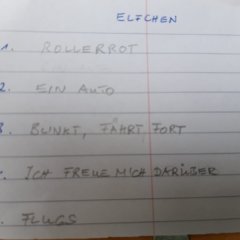 ELFCHEN
1. ROLLERROT
2. EIN AUTO
3. BLINKT, FÄHRT, FORT
. ICH FREUE MICH DARÜBER
. FLUGS